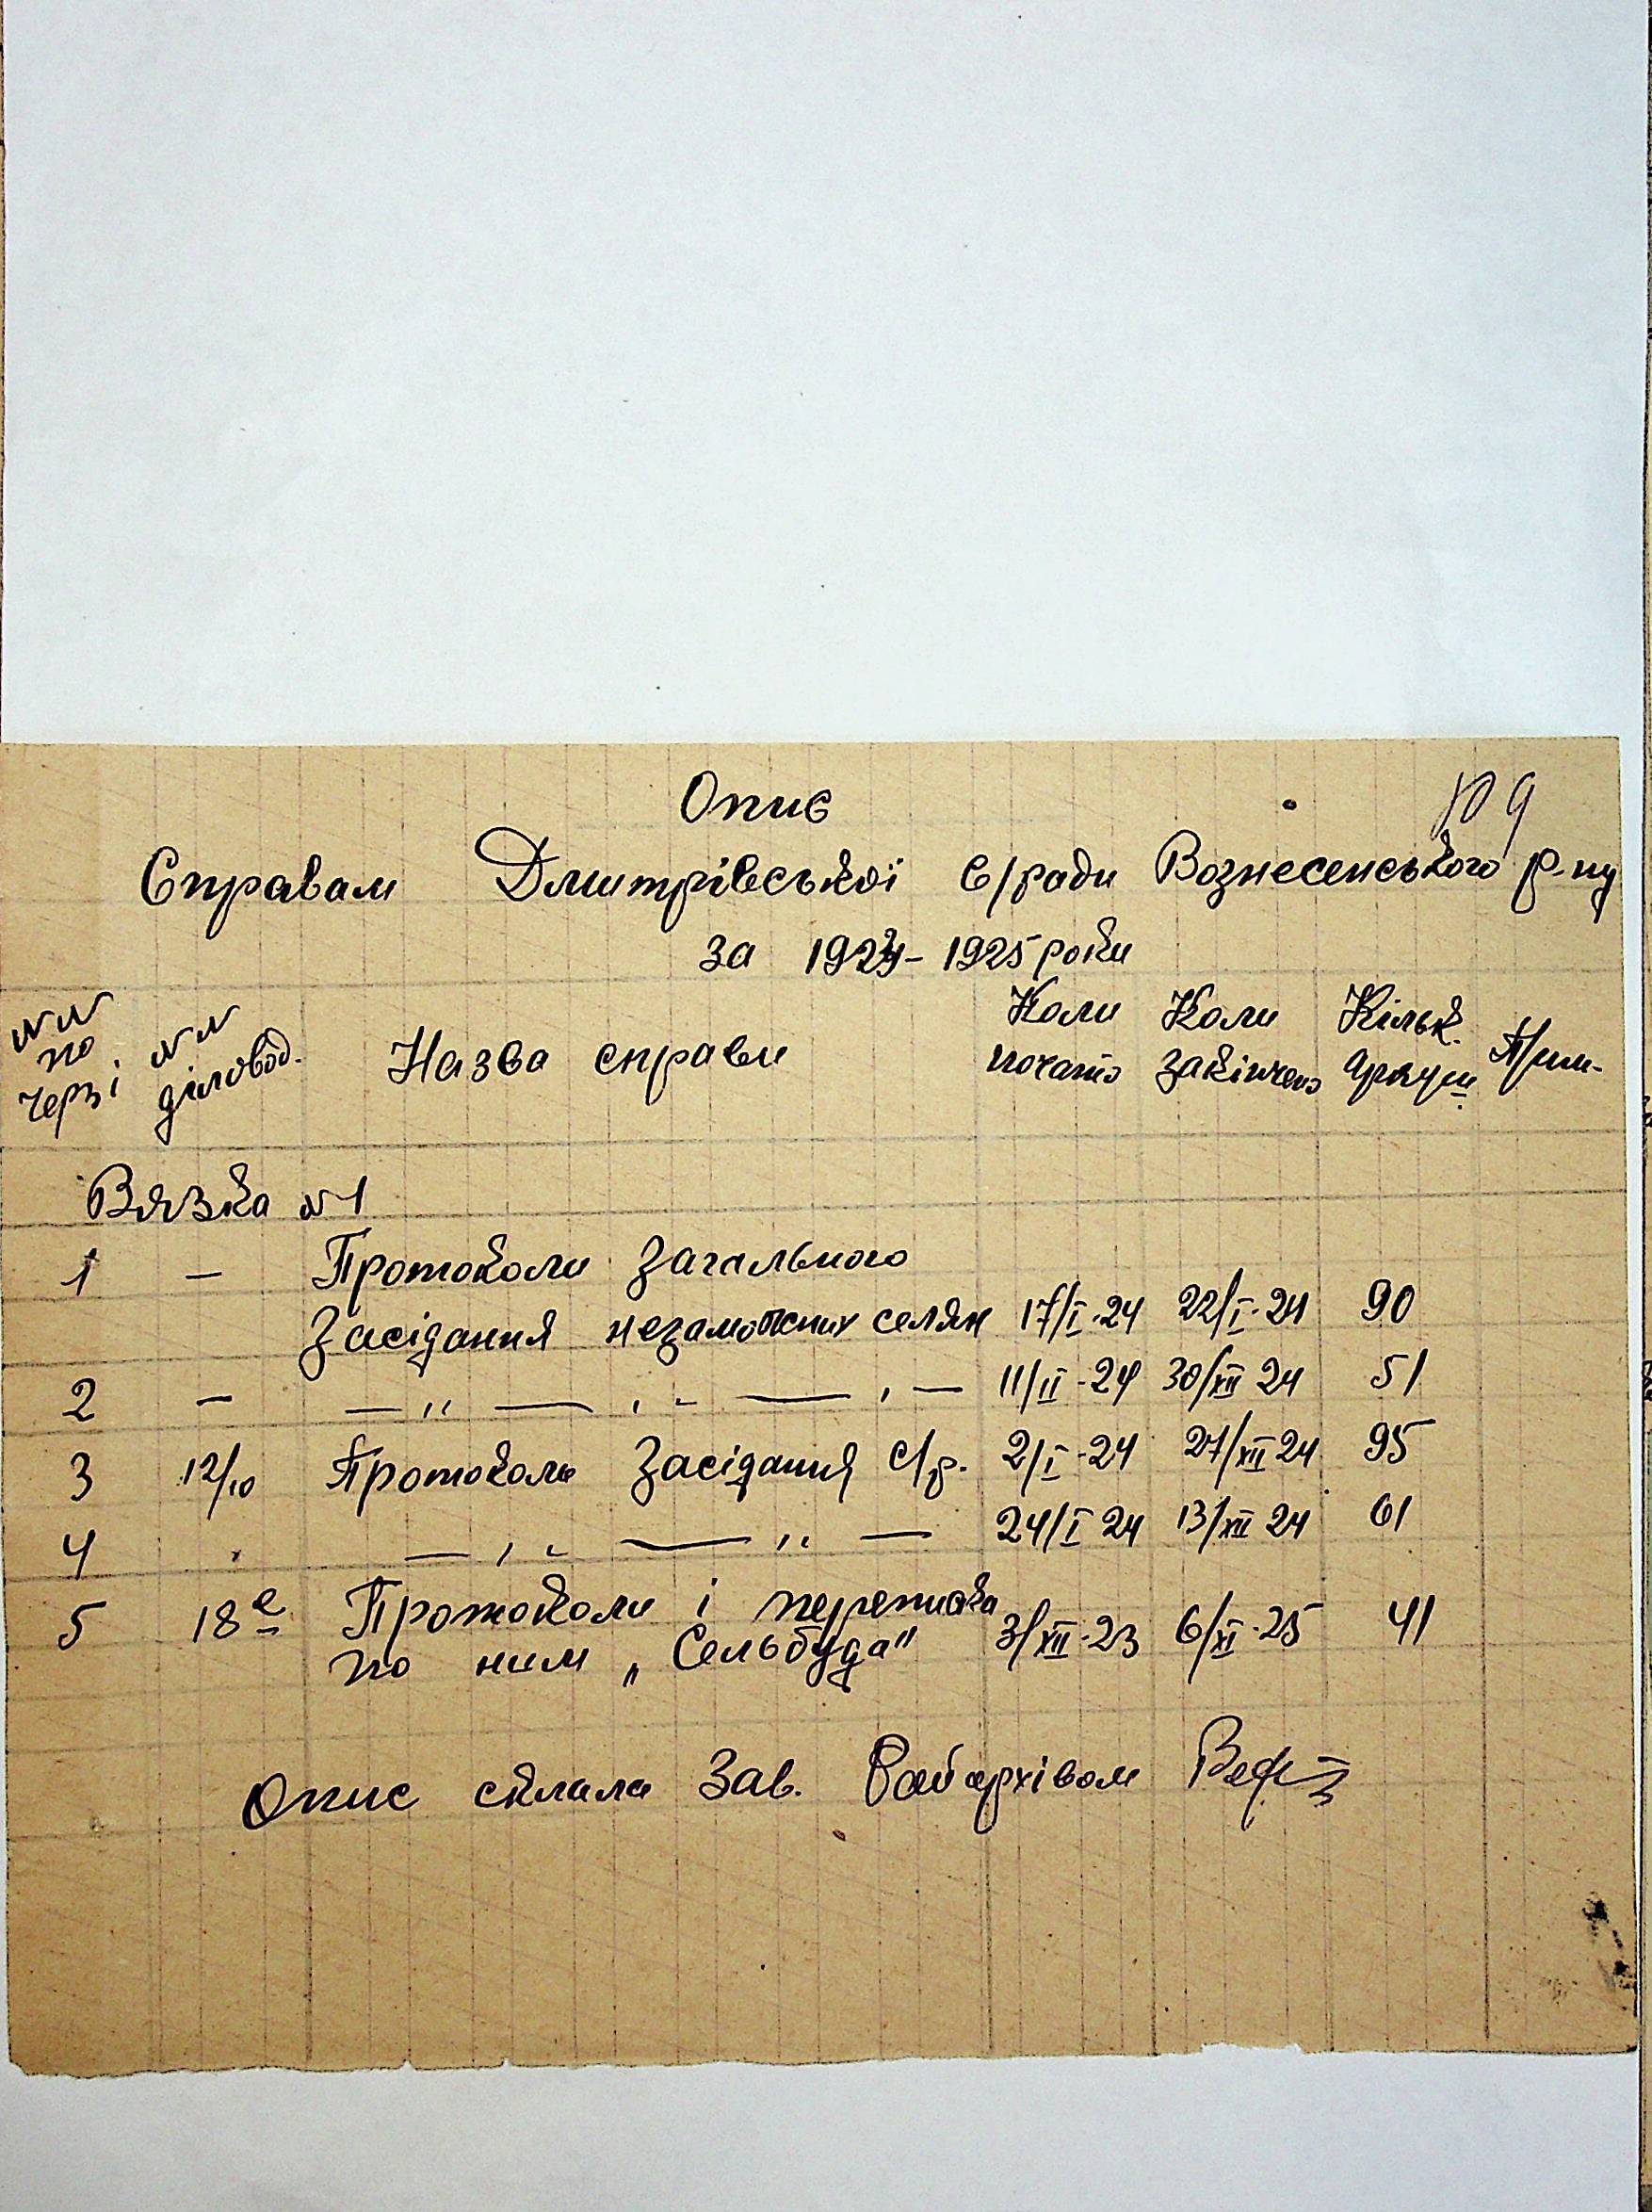 Опис
Справам Дмитрівської с/ради Вознесенського р-ну
за 1923-1925 роки
№№ по черзі №№ діловод. Назва справи Коли почато Коли закінчено Кільк. аркуш. Прим.
Вязка №1
1 — Протоколи загального
засідання незаможних селян 17/I-24 22/I-24 90
2 — —„— „ — „— 11/II-24 30/XII 24 51
3 12/10 Протоколи засідання с/р. 2/I-24 27/XII 24 95
4 —„— „— 24/I 24 13/XII 24 61
5 18е Протоколи і переписка
по ним „Сельбуда" 3/XII-23 6/XI-25 41
Опис склала Зав. Райархівом